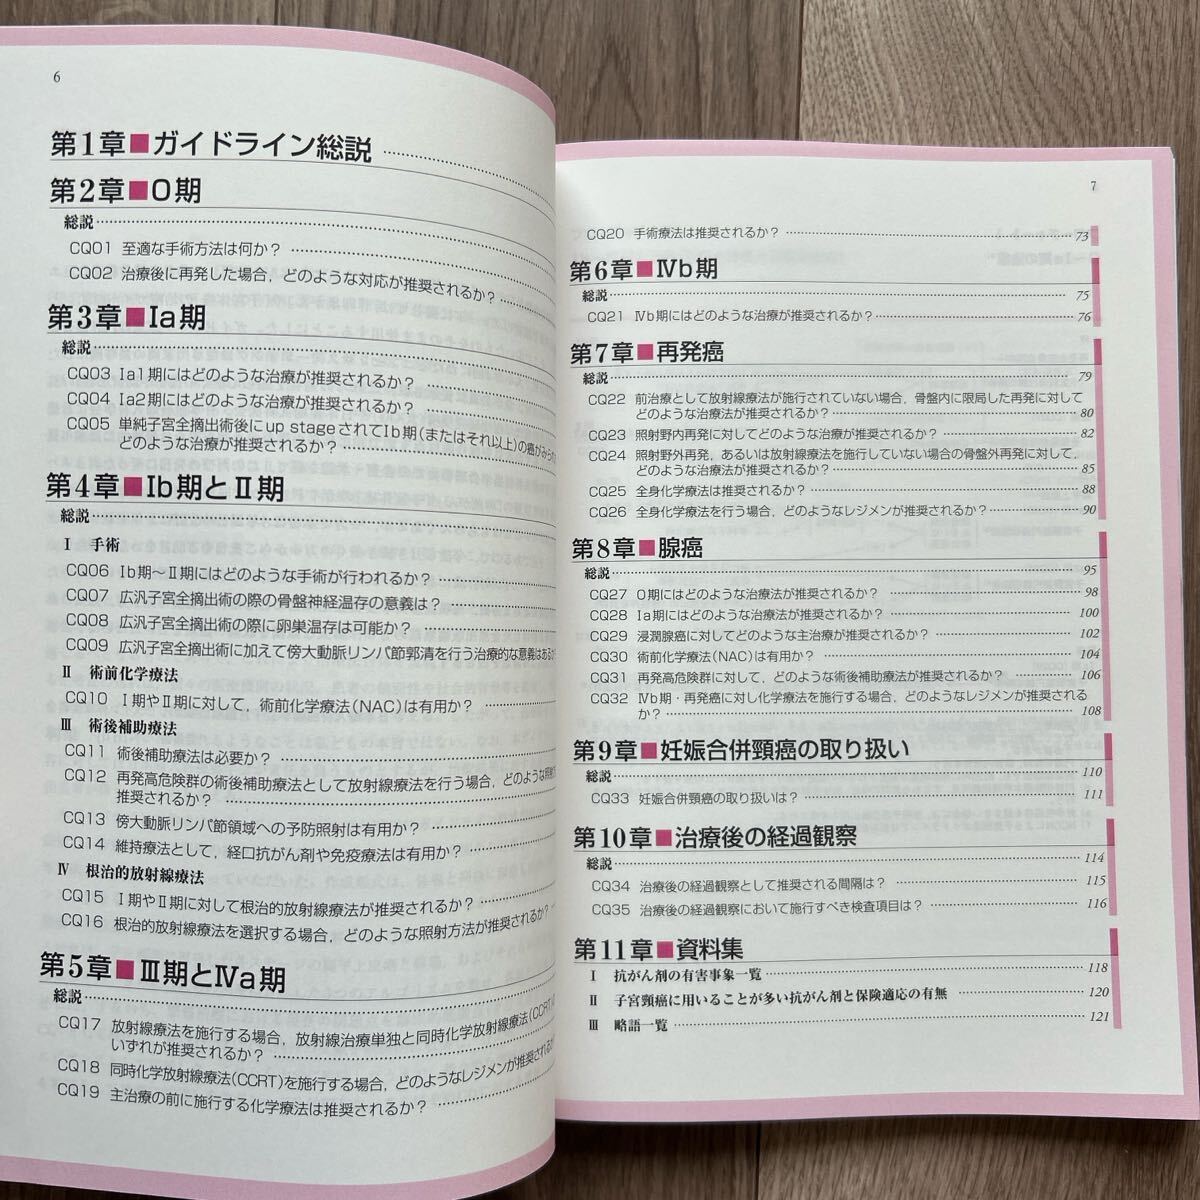 6
第1章■ガイドライン総説
第2章■0期
総説
CQ01 至適な手術方法は何か?
CQ02 治療後に再発した場合，どのような対応が推奨されるか?
第3章■Ia期
総説
CQ03 Ia1期にはどのような治療が推奨されるか?
CQ04 Ia2期にはどのような治療が推奨されるか?
CQ05 単純子宮全摘出術後にup stageされてIb期(またはそれ以上)の癌がみられ
どのような治療が推奨されるか?
第4章■Ib期とⅡ期
総説
Ⅰ 手術
CQ06 Ib期～Ⅱ期にはどのような手術が行われるか?
CQ07 広汎子宮全摘出術の際の骨盤神経温存の意義は?
CQ08 広汎子宮全摘出術の際に卵巣温存は可能か?
CQ09 広汎子宮全摘出術に加えて傍大動脈リンパ節郭清を行う治療的な意義はあるか
Ⅱ 術前化学療法
CQ10 Ⅰ期やⅡ期に対して，術前化学療法(NAC)は有用か?
Ⅲ 術後補助療法
CQ11 術後補助療法は必要か?
CQ12 再発高危険群の術後補助療法として放射線療法を行う場合，どのような
推奨されるか?
CQ13 傍大動脈リンパ節領域への予防照射は有用か?
CQ14 維持療法として，経口抗がん剤や免疫療法は有用か?
Ⅳ 根治的放射線療法
CQ15 Ⅰ期やⅡ期に対して根治的放射線療法が推奨されるか?
CQ16 根治的放射線療法を選択する場合，どのような照射方法が推奨されるか?
第5章■Ⅲ期とⅣa期
総説
CQ17 放射線療法を施行する場合，放射線治療単独と同時化学放射線療法(CCRT)の
いずれが推奨されるか?
CQ18 同時化学放射線療法(CCRT)を施行する場合，どのようなレジメンが推奨されるか
CQ19 主治療の前に施行する化学療法は推奨されるか?
7
CQ20 手術療法は推奨されるか? 73
第6章■Ⅳb期
総説 75
CQ21 Ⅳb期にはどのような治療が推奨されるか? 76
第7章■再発癌
総説 79
CQ22 前治療として放射線療法が施行されていない場合，骨盤内に限局した再発に対して
どのような治療法が推奨されるか? 80
CQ23 照射野内再発に対してどのような治療が推奨されるか? 82
CQ24 照射野外再発，あるいは放射線療法を施行していない場合の骨盤外再発に対して，
どのような治療法が推奨されるか? 85
CQ25 全身化学療法は推奨されるか? 88
CQ26 全身化学療法を行う場合，どのようなレジメンが推奨されるか? 90
第8章■腺癌
総説 95
CQ27 0期にはどのような治療法が推奨されるか? 98
CQ28 Ia期にはどのような治療法が推奨されるか? 100
CQ29 浸潤腺癌に対してどのような主治療が推奨されるか? 102
CQ30 術前化学療法(NAC)は有用か? 104
CQ31 再発高危険群に対して，どのような術後補助療法が推奨されるか? 106
CQ32 Ⅳb期・再発癌に対し化学療法を施行する場合，どのようなレジメンが推奨される
か? 108
第9章■妊娠合併頸癌の取り扱い
総説 110
CQ33 妊娠合併頸癌の取り扱いは? 111
第10章■治療後の経過観察
総説 114
CQ34 治療後の経過観察として推奨される間隔は? 115
CQ35 治療後の経過観察において施行すべき検査項目は? 116
第11章■資料集
Ⅰ 抗がん剤の有害事象一覧 118
Ⅱ 子宮頸癌に用いることが多い抗がん剤と保険適応の有無 120
Ⅲ 略語一覧 121